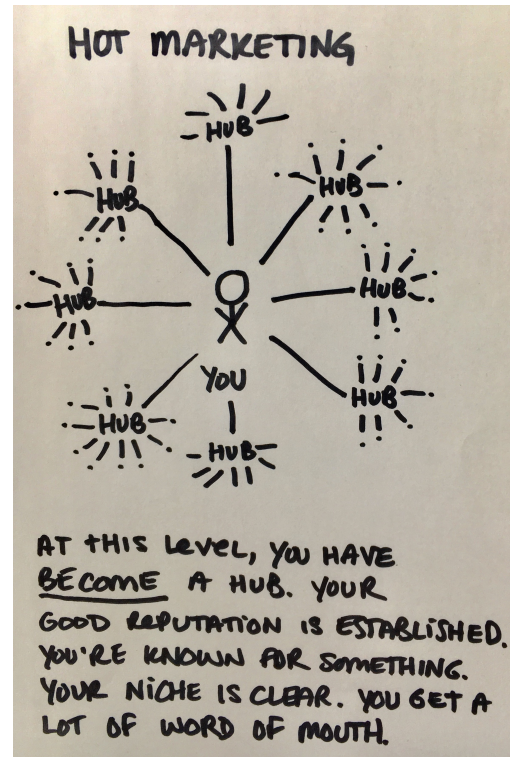 HOT MARKETING
HUB
HUB
HUB
HUB
HUB
YOU
HUB
HUB
HUB
AT THIS LEVEL, YOU HAVE
BECOME A HUB. YOUR
GOOD REPUTATION IS ESTABLISHED.
YOU'RE KNOWN FOR SOMETHING.
YOUR NICHE IS CLEAR. YOU GET A
LOT OF WORD OF MOUTH.